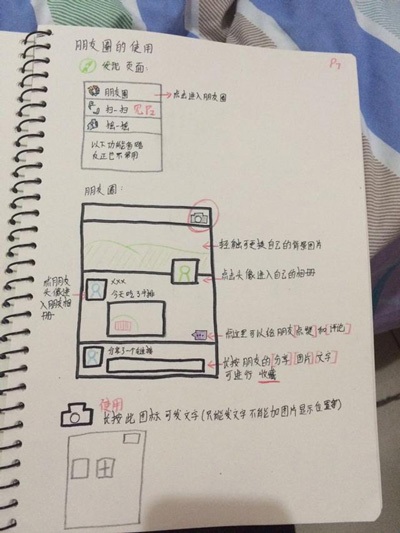 朋友圈的使用
P7
发现页面:
朋友圈
点击进入朋友圈
扫一扫 见P2
摇一摇
以下功能省略
反正已不常用
朋友圈:
轻触可更换自己的背景图片
点击头像进入自己的相册
点朋友
头像进
入朋友相
册
XXX
今天吃了
点这里可以给朋友点赞和评论
分享了一个链接
长按朋友的[分享][图片][文字]
可进行收藏
使用
长按此图标可发文字(只能发文字不能加图片显示位置等)